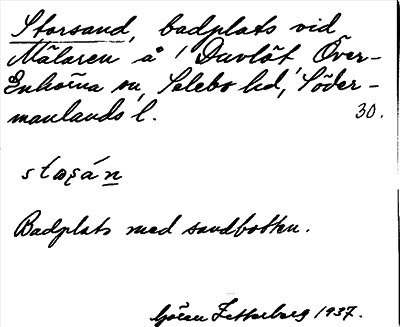 Storsand, badplats vid
Mälaren å 1 Duvlöt, Över-
Enhörna sn, Selebo hd, Söder-
manlands l. 30.
stɷʂán
Badplats med sandbotten.
Göran Zetterberg 1937.